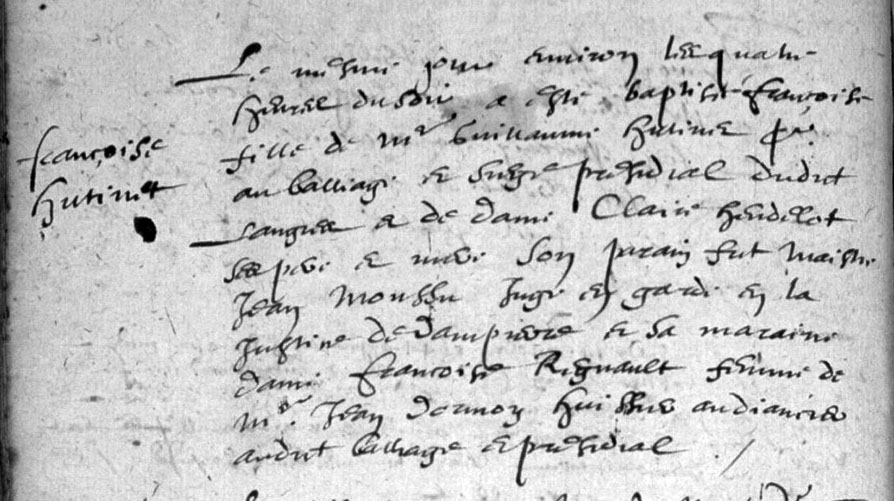 Le mesme jour environ les quatre
heures du soir a esté baptisée françoise
françoise
hutinet
fille de Mr Guillaume hutinet pr
au bailliage et siege presidial dudict
Langres et de dame Claire heudelot
ses pere et mere son parain fut maistre
Jean Moussu Juge en garde en la
Justice de Dampierre et sa maraine
dame françoise Regnault femme de
Mr Jean huissier audiancier
audict bailliage et presidial